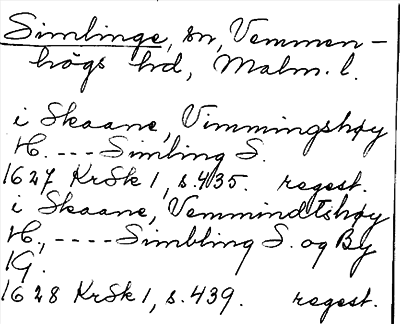 Simlinge, sn, Vemmen-
högs hd, Malm. l.
i Skaane, Vimmingshøy
H. ---- Simling S.
1627 KrSk 1, s. 435. regest.
i Skaane, Vemmindtshøy
H., ---- Simbling S. og By
19.
1628 KrSk 1, s. 439. regest.